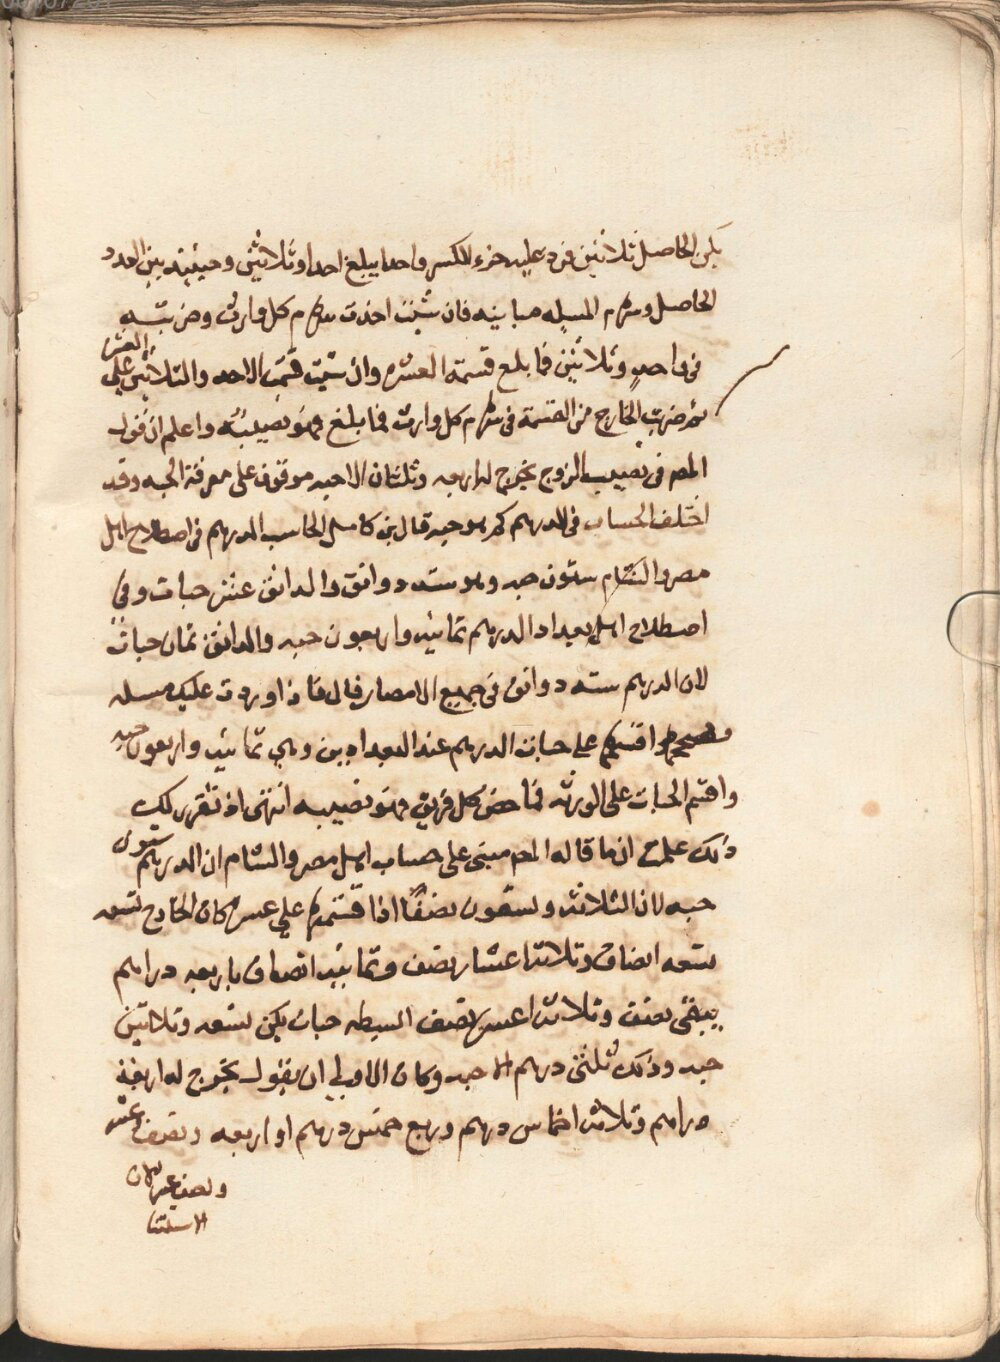 يكن الحاصل ثلاثين فزد عليه جزء الكسر واحدا يبلغ احدا وثلاثين وحينئيذ بين العدد
الحاصل وسهام المسيله مباينه فان شئت اخذت سهام كل وارث وضربته
في واحد وثلاثين فما بلغ قسمته العشره وان شئت قسمت الاحد والثلاثين علي العشر
ثم ضربت الخارج من القسمة في سهام كل وارث فما بلغ فهو نصيبه واعلم ان قول
المص في نصيب الزوج يخرج له اربعه وثلثان الا حبه موقوف على معرفة الحبه وقد
اختلف الحساب في الدرهم كم هو حبه قال بن كامل الحاسب الدرهم في اصطلاح اهل
مصر والشام ستون حبه وهو سته دوانق والدانق عشر حبات وفي
اصطلاح اهل بغداد الدرهم ثمانيه واربعون حبه والدانق ثمان حبات
لان الدرهم سته دوانق في جميع الامصار قال فاذا وردت عليك مسله
فصححها واقسمها على حبات الدرهم عند البغداديين وهي ثمانيه واربعون حبه
واقسم الحبات على الورثه فما خص كل فريق فهو نصيبه انتهى اذ تقرر لك
ذلك علمت ان ما قاله المص مبنى على حساب اهل مصر والشام ان الدرهم ستون
حبه لان الثلاثه وتسعون نصفا اذا قسمتها علي عشره كان الخارج تسعه
تسعه انصاف وثلاثة اعشار نصف وثمانيه انصاف باربعه دراهم
يبقى نصف وثلاثه اعشار نصف ابسطه حبات يكن تسعه وثلاثين
حبه وذلك ثلثى درهم الا حبه وكان الاولي ان يقول يخرج له اربعه
دراهم وثلاثه اخماس درهم وربع خمس درهم او اربعه ونصف عشر
ونصف عشر لان
الاستثنا